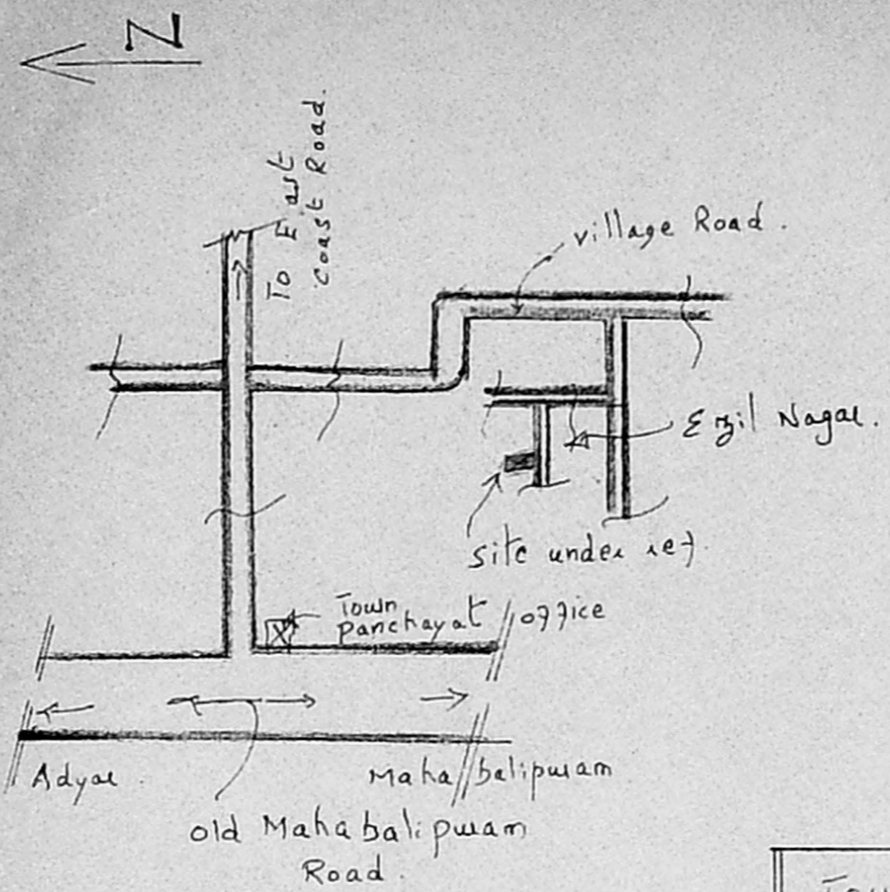 N
To East
Coast Road.
village Road.
Ezil Nagar.
site under ref.
Town
panchayat office
Adyar.
Mahabalipuram
old Mahabalipuram
Road.